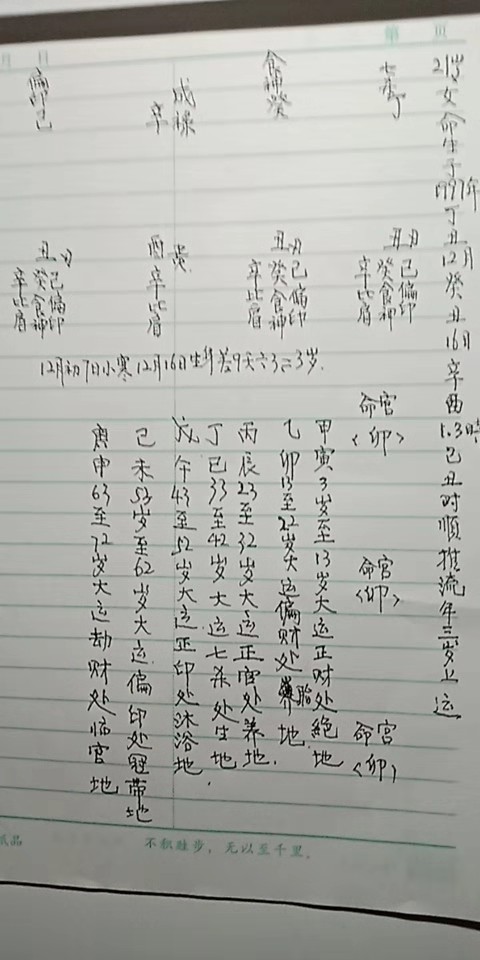 第 页
月 日
21岁女命生于1997年丁丑12月癸丑16日辛酉1.3時己丑时順推流年三岁上运
七杀丁
食神癸
戍禄
辛
偏印己
丑刃
己偏印
癸食神
辛比肩
丑刃
己偏印
癸食神
辛比肩
酉
辛比肩
丑刃
己偏印
癸食神
辛比肩
12月初7日小寒12月16日生
命宫
<卯>
命宫
<卯>
命宫
<卯>
甲寅3岁至13岁大运正财处絕地
乙卯13至22岁大运偏财处胎地.
丙辰23至32岁大运正官处养地.
丁巳33至42岁大运七杀处生地.
戊午43至52岁大运正印处沐浴地
己未53岁至62岁大运偏印处冠带地
庚申63至72岁大运劫财处临官地
纸品
不积跬步，无以至千里。